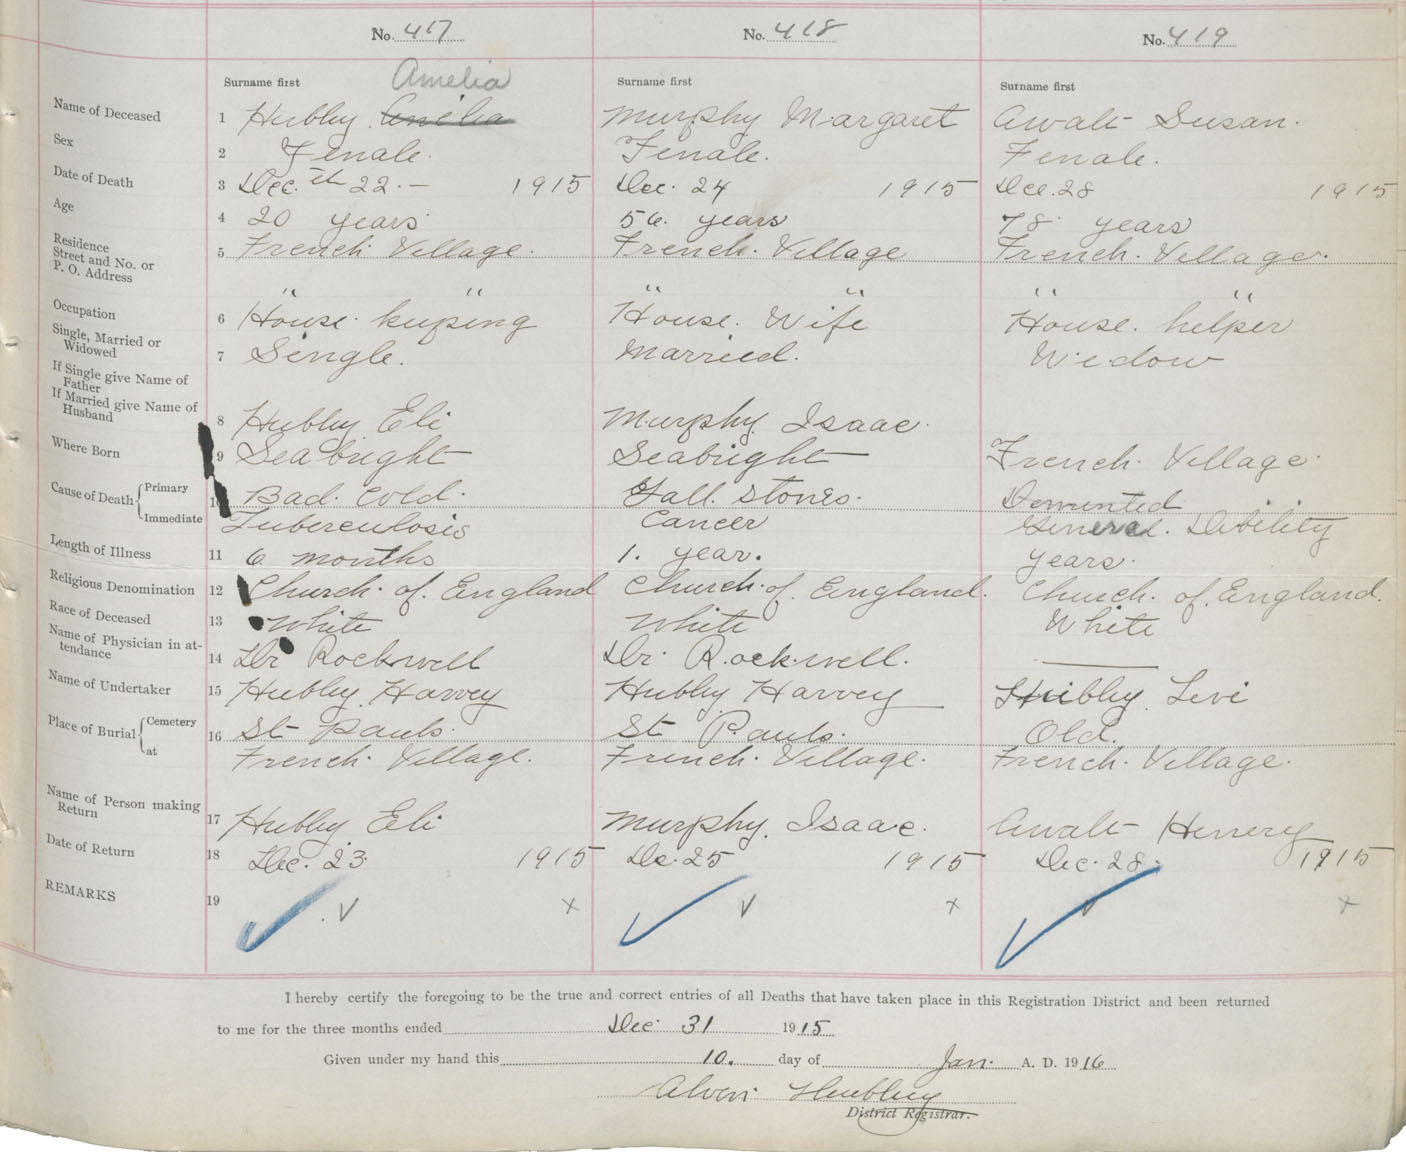 No. 417 No. 418 No. 419
Amelia
Surname first Surname first Surname first
Name of Deceased 1 Hubley Amelia Murphy Margaret Awalt Susan.
Sex 2 Female. Female. Female.
Date of Death 3 Dec. th 22. – 1915 Dec. 24 1915 Dec. 28 1915
Age 4 20 years 56. years 78 years
Residence
Street and No. or
P. O. Address
5 French Village. French. Village French. Village.
" " " " " "
Occupation 6 House. keeping House. Wife House. helper
Single, Married or
Widowed
7 Single. Married. Widow
If Single give Name of
Father
If Married give Name of
Husband
8 Hubley Eli Murphy Isaac.
Where Born 9 Seabright Seabright French. Village.
Cause of Death { Primary 10 Bad. Cold. Gall. Stones. Demented
Immediate Tuberculosis Cancer General. Debility
Length of Illness 11 6 months 1. year. years.
Religious Denomination 12 Church. of. England Church. of. England. Church. of. England.
Race of Deceased 13 White White White
Name of Physician in at-
tendance
14 Dr Rockwell Dr. Rockwell. —
Name of Undertaker 15 Hubley Harvey Hubley Harvey Hubley Levi
Place of Burial { Cemetery 16 St Pauls. St Pauls. Old.
at French. Village. French. Village. French. Village.
Name of Person making
Return
17 Hubley Eli Murphy. Isaac. Awalt Hennery
Date of Return 18 Dec. 23. 1915 De. 25 1915 Dec. 28. 1915
REMARKS 19 ✓ . √ x ✓ √ x ✓ √ x
I hereby certify the foregoing to be the true and correct entries of all Deaths that have taken place in this Registration District and been returned
to me for the three months ended Dec. 31 1915
Given under my hand this 10. day of Jan. A. D. 1916
Hubley
District Registrar.